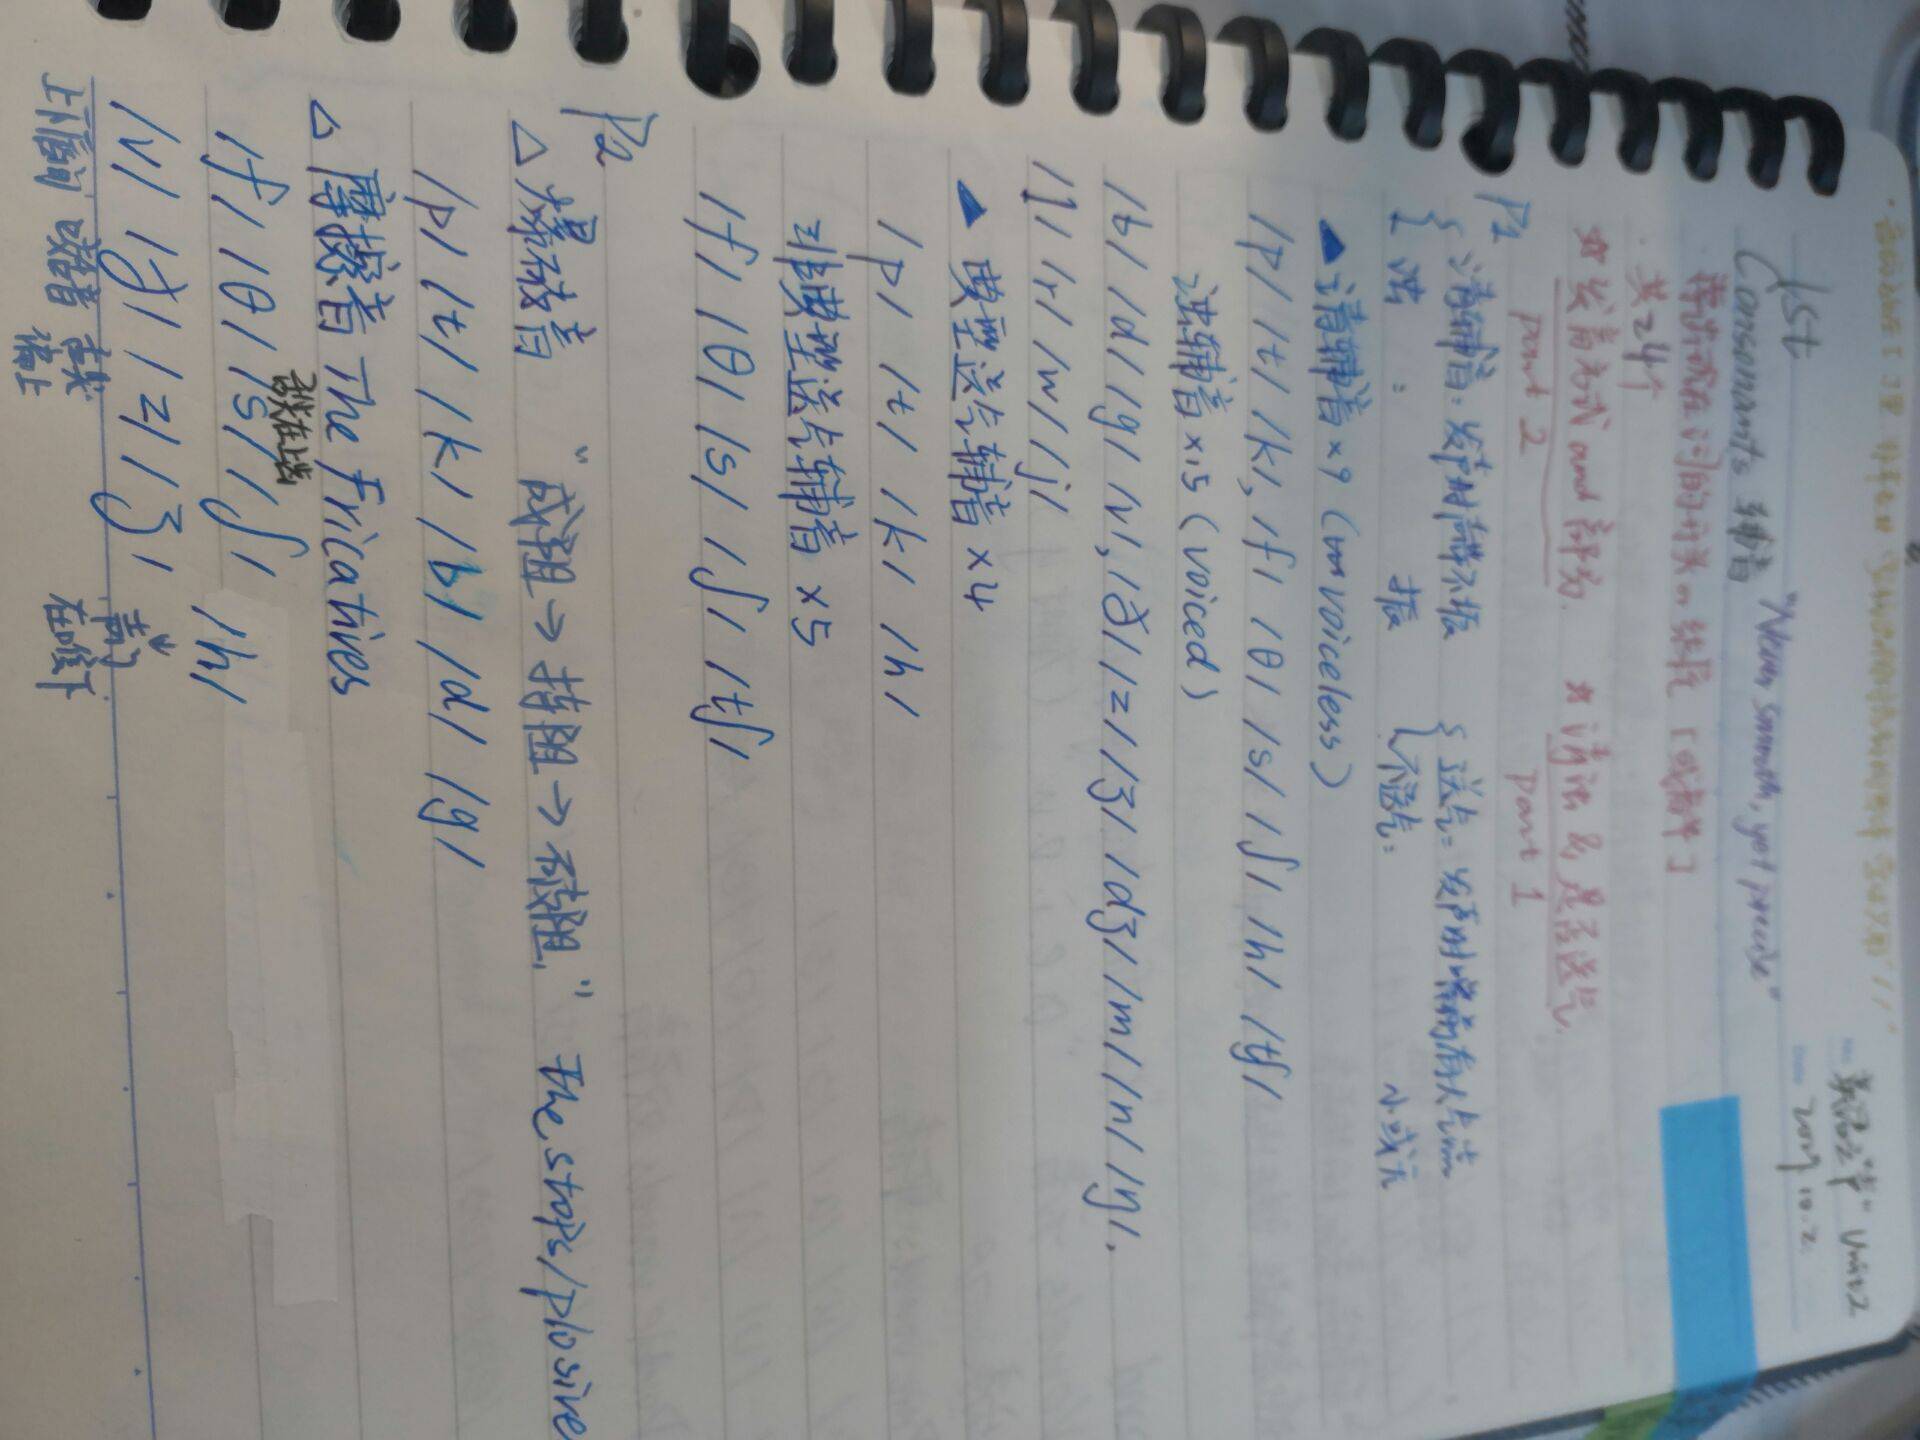 英冠之"声" Unit2
2019.10.2
1st
Consonants 辅音 "Never smooth, yet precise"
共24个
*发音方式 and 部分 *清浊&是否送气
part 2 part 1
P1
{清辅音：发声时声带不振 {送气：发声时嘴前有大气流
浊 ： 振 不送气： 小或无
▲清辅音×9 (voiceless)
/p/ /t/ /k/, /f/ /θ/ /s/ /ʃ/ /h/ /tʃ/
浊辅音×15 (voiced)
/b/ /d/ /g/ /v/, /ð/ /z/ /ʒ/ /dʒ/ /m/ /n/ /ŋ/,
/l/ /r/ /w/ /j/
▲ 典型送气辅音×4
/p/ /t/ /k/ /h/
非典型送气辅音×5
/f/ /θ/ /s/ /ʃ/ /tʃ/
P2
△爆破音 "成阻→持阻→破阻" The stops/plosive
/p/ /t/ /k/ /b/ /d/ /g/
△摩擦音 The Fricatives
/f/ /θ/ /s/ /ʃ/ /h/
/v/ /ð/ /z/ /ʒ/